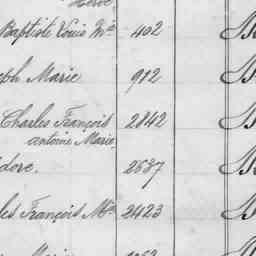 Baptiste Louis Mie 402
eph Marie 912
Charles François 2842
antoine Marie
dore. 2687
les François Mie 2423